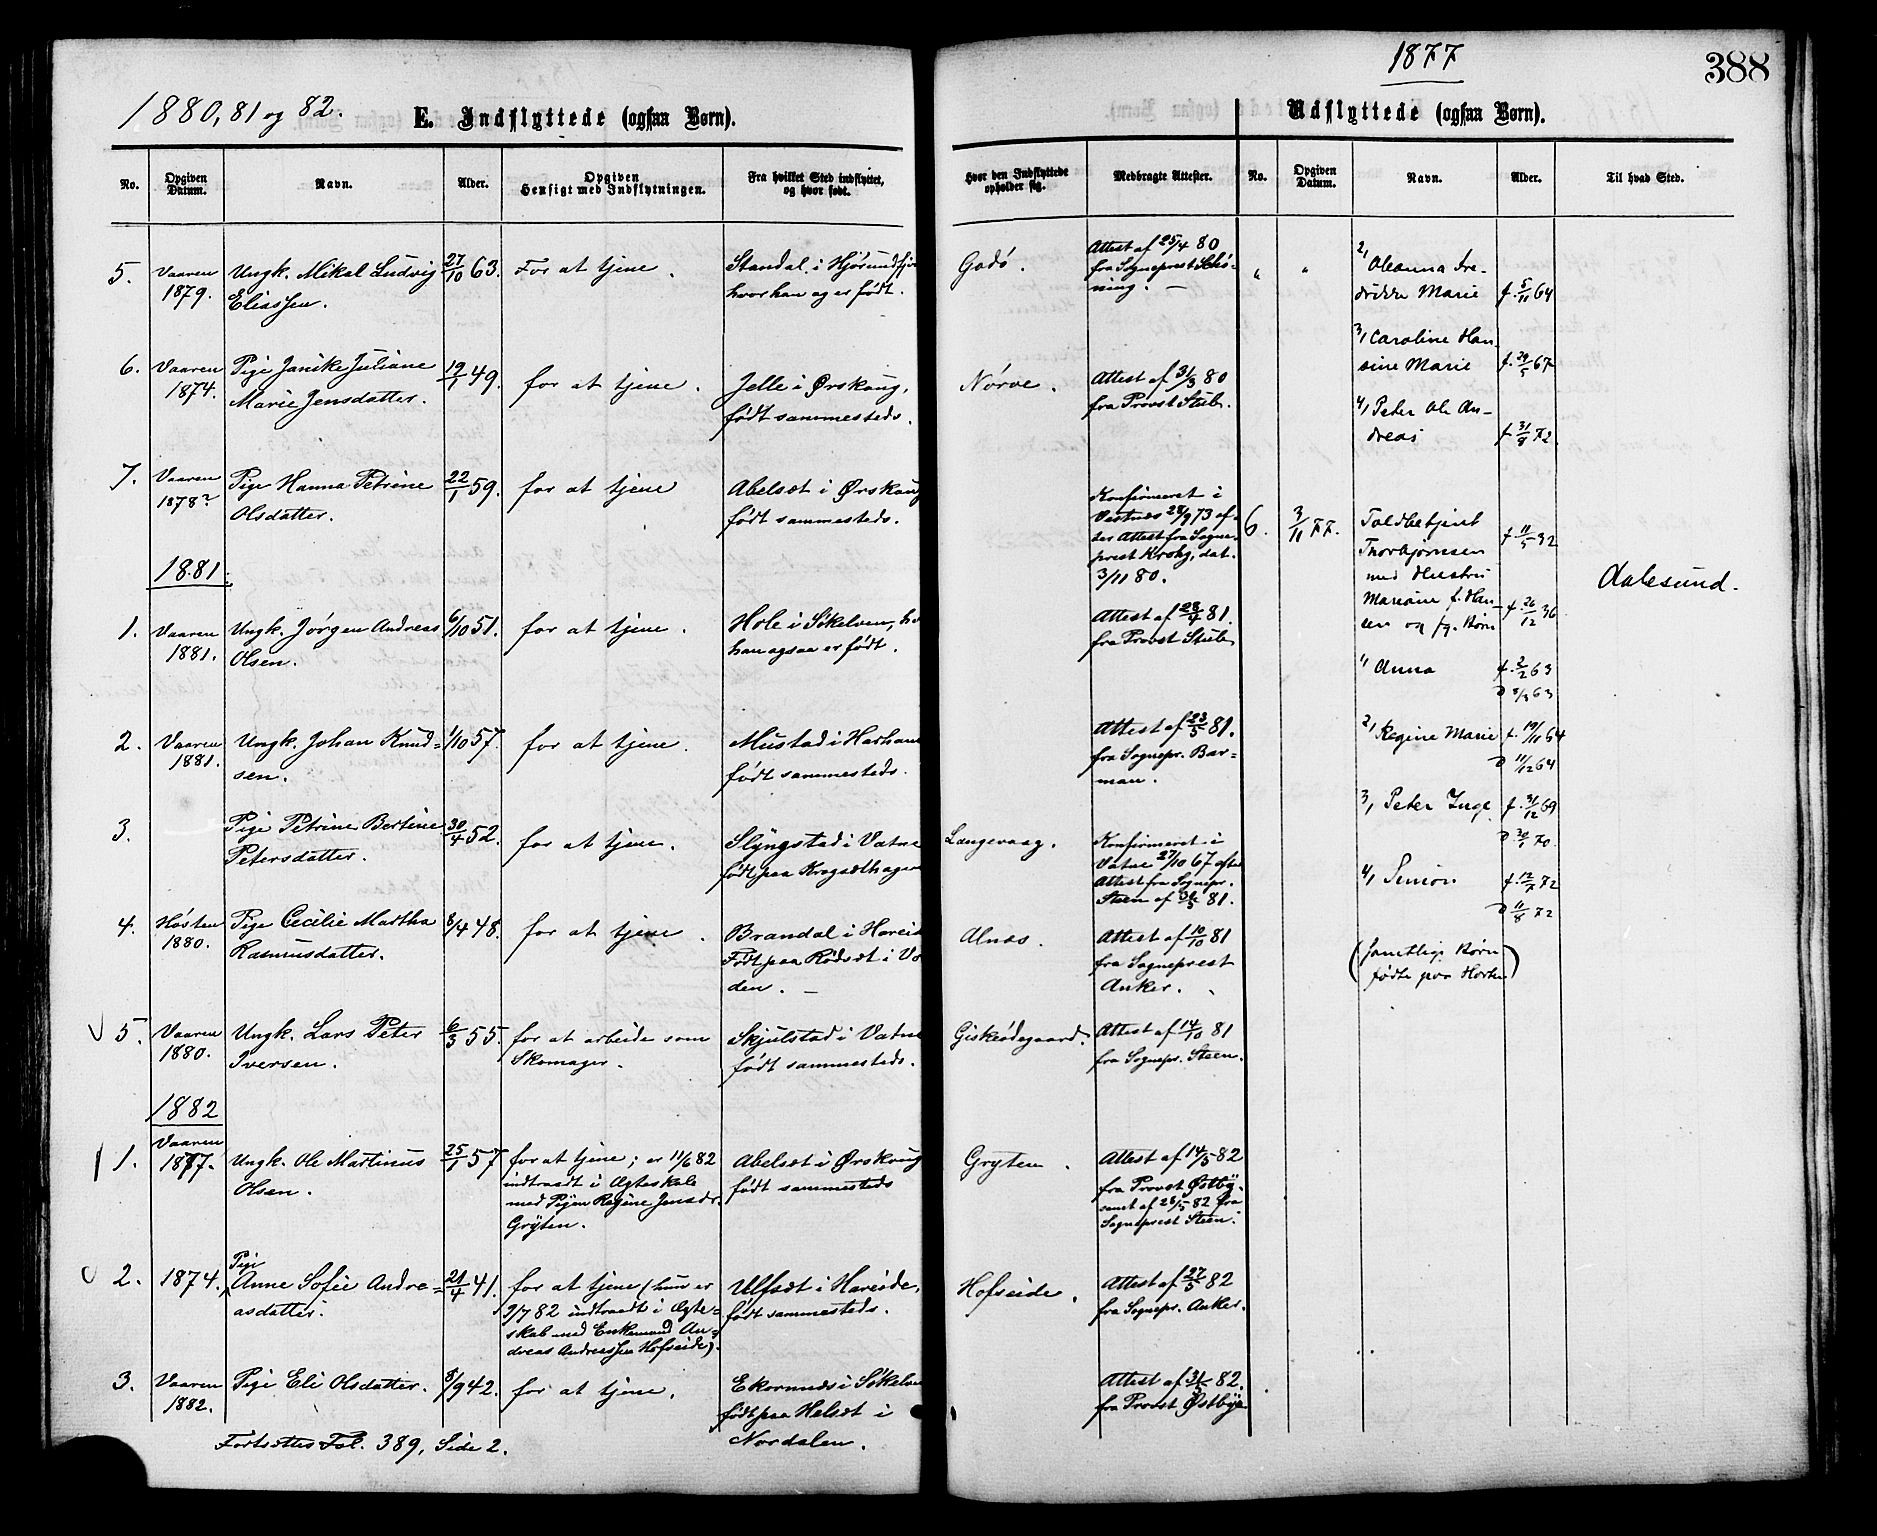 1880, 81 og 82.
E. Indflyttede (ogsaa Børn).
No.
Opgiven Datum.
Navn.
Alder.
Opgiven Hensigt med Indflytningen.
Fra hvilket Sted indflyttet, og hvor født.
5.
Vaaren 1879.
Ungk. Mikal Ludvig
Eliassen.
27/10 63.
For at tjene.
Standal i Hjørundfj
hvor han og er født.
6.
Vaaren 1874.
Pige Janike Juliane
Marie Jensdatter.
19/1 49.
for at tjene.
Jelle i Ørskoug,
født sammesteds.
7.
Vaaren 1878?
Pige Hanna Petrine
Olsdatter.
22/1 59.
for at tjene
Abelsæt i Ørskoug
født sammesteds.
1881:
1.
Vaaren 1881.
Ungk. Jørgen Andreas
Olsen.
6/10 51.
for at tjene.
Hole i Søkelven, hv
han ogsaa er født.
2.
Vaaren 1881.
Ungk. Johan Knud-
sen.
1/10 57.
for at tjene.
Mustad i Harham
født sammesteds.
3.
Pige Petrine Bertine
Petersdatter.
30/4 52.
for at tjene.
Slyngstad i Vatne
født paa Krogsæthagen
4.
Høsten 1880.
Pige Cecilie Martha
Rasmusdatter.
8/4 48.
for at tjene.
Brandal i Hareid
Født paa Rødsæt i Vo
den. –
5.
Vaaren 1880.
Ungk. Lars Peter
Iversen.
6/3 55.
for at arbeide som
Skomager.
Skjulstad i Vatne
født sammesteds.
1882
1.
Vaaren 1877.
Ungk. Ole Martinus
Olsen.
25/1 57
for at tjene; er 11/6 82
indtraadt i Ægteskab
med Pigen Regine Jensdr.
Gryten.
Abelsæt i Ørskoug
født sammesteds
2.
1874.
Pige
Anne Sofie Andre-
asdatter.
21/4 41.
for at tjene (hun er
9/7 82 indtraadt i Ægte-
skab med Enkemand An-
dreas Andreassen Hofseide).
Ulfsæt i Hareide,
født sammesteds.
3.
Vaaren 1882.
Pige Eli Olsdatter.
8/9 42.
for at tjene.
Ekornnæs i Søkelve
født paa Helsæt i
Nordalen.
Fortsættes Fol. 389, Side 2.
1877
388
Udflyttede (ogsaa Børn).
Hvor den Indflyttede opholder sig.
Medbragte Attester.
No.
Opgiven Datum.
Navn.
Alder.
Til hvad Sted.
Godø.
Attest af 25/4 80
fra Sogneprest Schø-
ning. –
"
"
2, Oleanna Fre-
drikke Marie
f. 5/11 64
3, Caroline Han-
sine Marie
f. 29/5 67
4, Peter Ole An-
dreas
f. 31/8 72.
Nørve.
Attest af 31/3 80
fra Provst Stub.
Konfirmeret i
Vestnæs 28/9 73 ef-
ter Attest fra Sogne-
prest Krohg, dat.
3/11 80.
6.
3/11 77.
Toldbetjent
Thorbjørnsen
med Hustru
Mariane f. Han-
sen og fg. Børn
f. 11/5 32
f. 26/12 36
Aalesund.
Attest af 28/4 81.
fra Provst Stub
1, Anna
f. 2/2 63
D 8/3 63
Attest af 23/5 81.
fra Sognepr. Bar-
man.
2, Regine Marie
f. 19/11 64
D 11/12 64
3, Peter Inge
f. 31/12 69
D 20/1 70.
Langevaag.
Konfirmeret i
Vatne 27/10 67 efter
Attest fra Sognepr.
Steen af 31/5 81.
4, Simon
f. 12/7 72
D 11/8 72
(samtlige Børn
fødte paa Horten)
Alnæs.
Attest af 10/10 81
fra Sogneprest
Anker.
Giskeødegaard.
Attest af 14/10 81
fra Sognepr. Steen.
Gryten.
Attest af 14/5 82
fra Provst Østby
samt af 28/5 82 fra
Sogneprest Steen.
Hofseide.
Attest af 27/5 82
fra Sognepr. Anker.
Attest af 31/5 82.
fra Provst Østbye